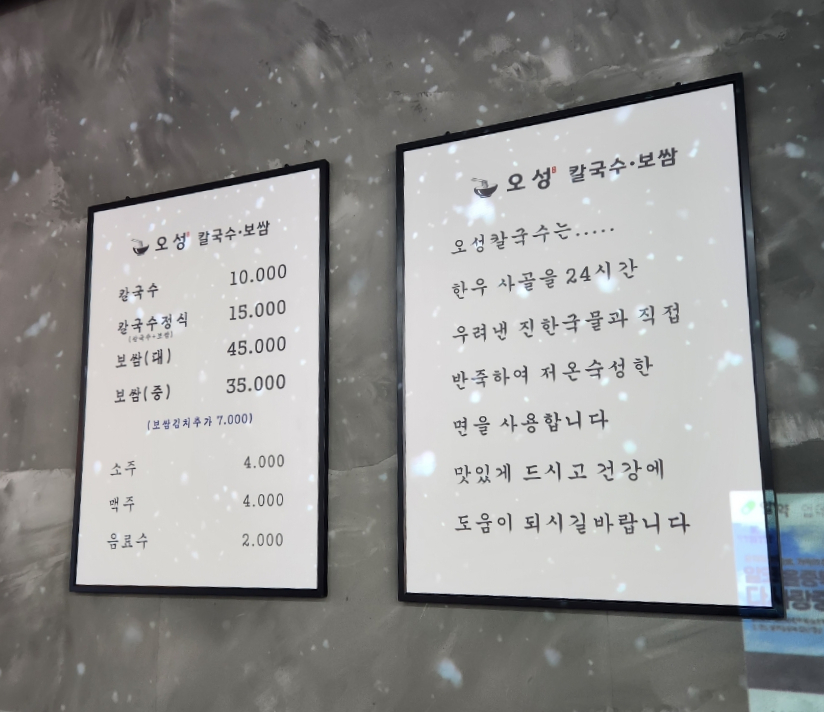 오성 칼국수·보쌈
칼국수 10.000
칼국수정식 15.000
(칼국수+보쌈)
보쌈(대) 45.000
보쌈(중) 35.000
(보쌈김치추가 7.000)
소주 4.000
맥주 4.000
음료수 2.000
오성 칼국수·보쌈
오성칼국수는.....
한우 사골을 24시간
우려낸 진한국물과 직접
반죽하여 저온숙성한
면을 사용합니다
맛있게 드시고 건강에
도움이 되시길바랍니다